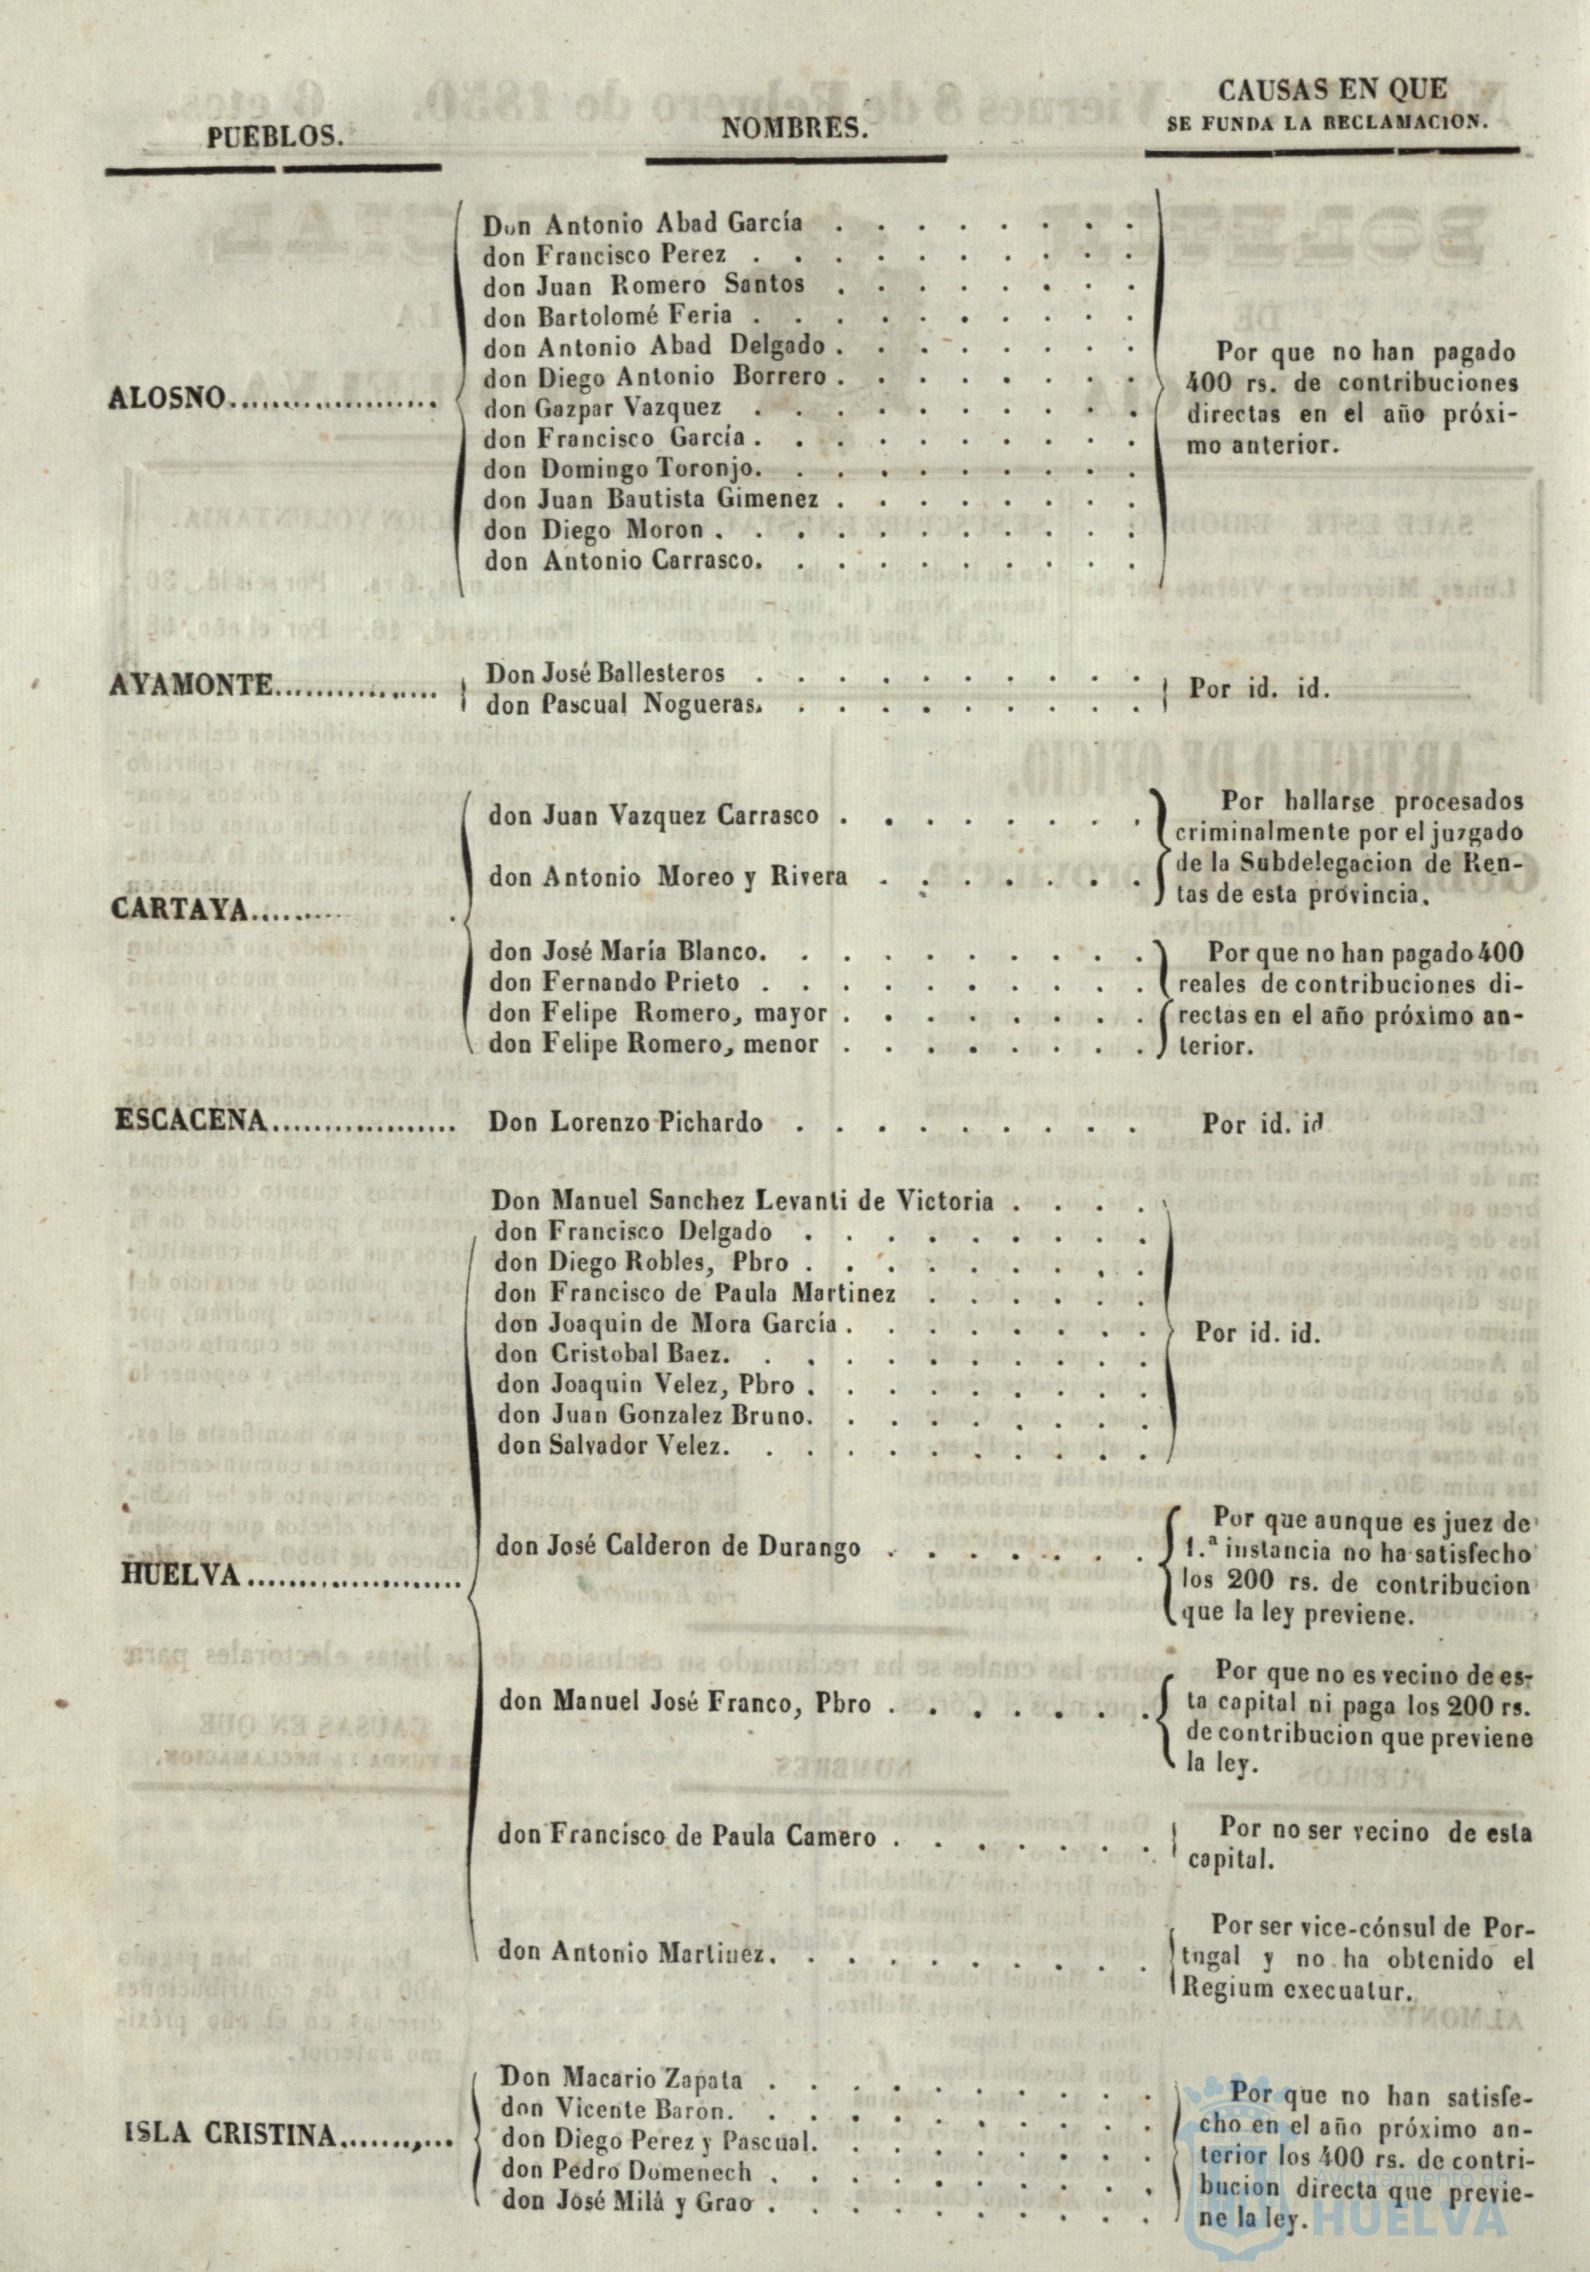 PUEBLOS.
NOMBRES.
CAUSAS EN QUE
SE FUNDA LA RECLAMACION.
ALOSNO....................
Don Antonio Abad García . . . . . . . .
don Francisco Perez . . . . . . . . . .
don Juan Romero Santos . . . . . . . .
don Bartolomé Feria . . . . . . . . . .
don Antonio Abad Delgado . . . . . . . .
don Diego Antonio Borrero . . . . . . . .
don Gazpar Vazquez . . . . . . . . . .
don Francisco García . . . . . . . . . .
don Domingo Toronjo. . . . . . . . . .
don Juan Bautista Gimenez . . . . . . . .
don Diego Moron . . . . . . . . . . .
don Antonio Carrasco. . . . . . . . . .
Por que no han pagado
400 rs. de contribuciones
directas en el año próxi-
mo anterior.
AYAMONTE................
Don José Ballesteros . . . . . . . . . .
don Pascual Nogueras. . . . . . . . . .
Por id. id.
CARTAYA.........
don Juan Vazquez Carrasco . . . . . . . .
don Antonio Moreo y Rivera . . . . . . .
Por hallarse procesados
criminalmente por el juzgado
de la Subdelegacion de Ren-
tas de esta provincia.
don José María Blanco. . . . . . . . . .
don Fernando Prieto . . . . . . . . . .
don Felipe Romero, mayor . . . . . . . .
don Felipe Romero, menor . . . . . . . .
Por que no han pagado 400
reales de contribuciones di-
rectas en el año próximo an-
terior.
ESCACENA..................
Don Lorenzo Pichardo . . . . . . . . .
Por id. id
HUELVA.....................
Don Manuel Sanchez Levanti de Victoria . . . .
don Francisco Delgado . . . . . . . . .
don Diego Robles, Pbro . . . . . . . . .
don Francisco de Paula Martinez . . . . . .
don Joaquin de Mora García . . . . . . . .
don Cristobal Baez. . . . . . . . . . .
don Joaquin Velez, Pbro . . . . . . . . .
don Juan Gonzalez Bruno. . . . . . . . .
don Salvador Velez. . . . . . . . . . .
Por id. id.
don José Calderon de Durango . . . . . . .
Por que aunque es juez de
1.ª instancia no ha satisfecho
los 200 rs. de contribucion
que la ley previene.
don Manuel José Franco, Pbro . . . . . . .
Por que no es vecino de es-
ta capital ni paga los 200 rs.
de contribucion que previene
la ley.
don Francisco de Paula Camero . . . . . . .
Por no ser vecino de esta
capital.
don Antonio Martinez. . . . . . . . . .
Por ser vice-cónsul de Por-
tugal y no ha obtenido el
Regium execuatur.
ISLA CRISTINA.......,...
Don Macario Zapata . . . . . . . . . .
don Vicente Baron. . . . . . . . . . .
don Diego Perez y Pascual. . . . . . . . .
don Pedro Domenech . . . . . . . . . .
don José Milá y Grao . . . . . . . . . .
Por que no han satisfe-
cho en el año próximo an-
terior los 400 rs. de contri-
bucion directa que previe-
ne la ley.
Ayuntamiento de
HUELVA